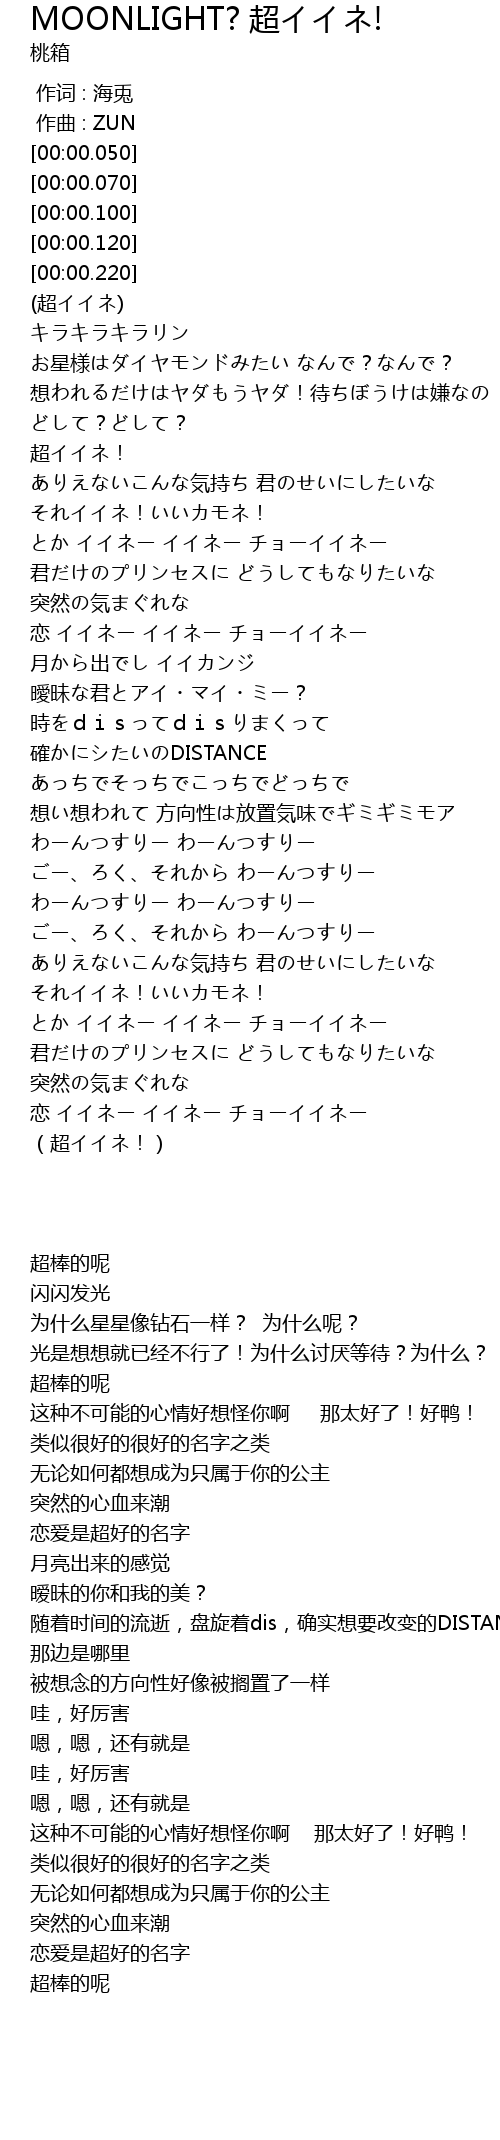 MOONLIGHT? 超イイネ!
桃箱
作词 : 海兎
作曲 : ZUN
[00:00.050]
[00:00.070]
[00:00.100]
[00:00.120]
[00:00.220]
(超イイネ)
キラキラキラリン
お星様はダイヤモンドみたい なんで？なんで？
想われるだけはヤダもうヤダ！待ちぼうけは嫌なの
どして？どして？
超イイネ！
ありえないこんな気持ち 君のせいにしたいな
それイイネ！いいカモネ！
とか イイネー イイネー チョーイイネー
君だけのプリンセスに どうしてもなりたいな
突然の気まぐれな
恋 イイネー イイネー チョーイイネー
月から出でし イイカンジ
曖昧な君とアイ・マイ・ミー？
時をｄｉｓってｄｉｓりまくって
確かにシたいのDISTANCE
あっちでそっちでこっちでどっちで
想い想われて 方向性は放置気味でギミギミモア
わーんつすりー わーんつすりー
ごー、ろく、それから わーんつすりー
わーんつすりー わーんつすりー
ごー、ろく、それから わーんつすりー
ありえないこんな気持ち 君のせいにしたいな
それイイネ！いいカモネ！
とか イイネー イイネー チョーイイネー
君だけのプリンセスに どうしてもなりたいな
突然の気まぐれな
恋 イイネー イイネー チョーイイネー
（超イイネ！）
超棒的呢
闪闪发光
为什么星星像钻石一样？ 为什么呢？
光是想想就已经不行了！为什么讨厌等待？为什么？
超棒的呢
这种不可能的心情好想怪你啊 那太好了！好鸭！
类似很好的很好的名字之类
无论如何都想成为只属于你的公主
突然的心血来潮
恋爱是超好的名字
月亮出来的感觉
暧昧的你和我的美？
随着时间的流逝，盘旋着dis，确实想要改变的DISTAN
那边是哪里
被想念的方向性好像被搁置了一样
哇，好厉害
嗯，嗯，还有就是
哇，好厉害
嗯，嗯，还有就是
这种不可能的心情好想怪你啊 那太好了！好鸭！
类似很好的很好的名字之类
无论如何都想成为只属于你的公主
突然的心血来潮
恋爱是超好的名字
超棒的呢